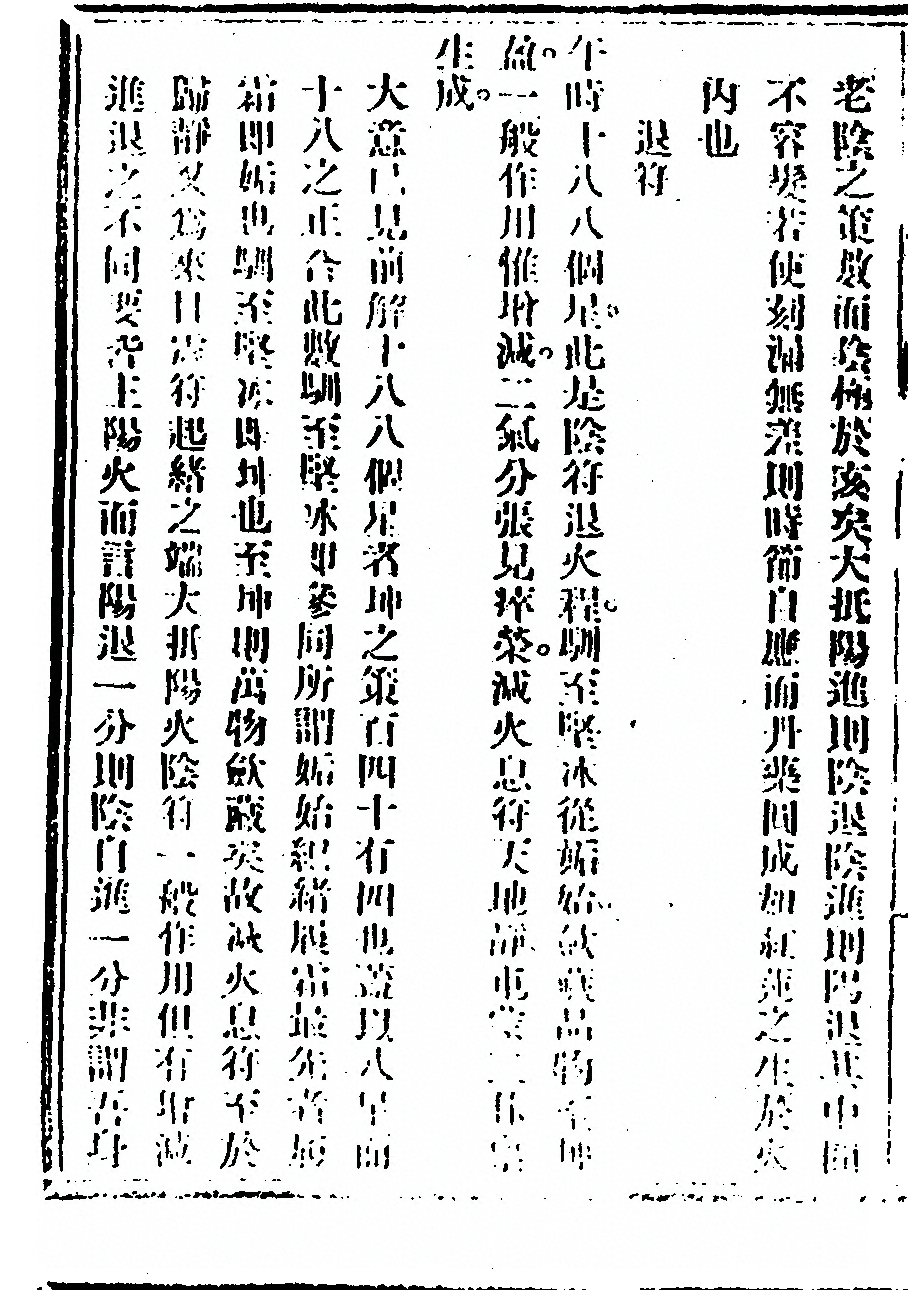 老陰之策數而陰極於亥矣大抵陽進則陰退陰進則陽退其中間
不容髮若使刻漏無差則時節自應而丹藥圓成如紅蓮之生於火
內也
退符
午時十八八個星。此是陰符退火程。馴至堅冰從姤始。斂藏品物至坤
盈。一般作用惟增減。二氣分張見瘁榮。減火息符天地靜屯蒙二卦
生成。
大意已見前解十八八個星者坤之策百四十有四也蓋以八星而
十八之正合此數馴至堅冰卽參同所謂姤始紀緒履霜最先者履
霜卽姤也馴至堅冰卽坤也至坤則萬物斂藏矣故減火息符至於
歸靜又爲來日進符起緒之端大抵陽火陰符一般作用但有增減
進退之不同要皆主陽火而言陽退一分則陰自進一分非謂吾身